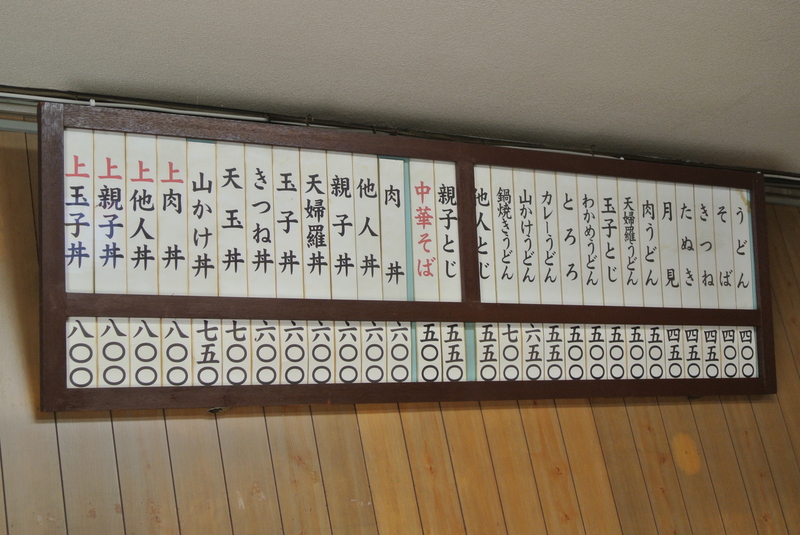 うどん 四〇〇
そば 四〇〇
きつね 四五〇
たぬき 四五〇
月見 四五〇
肉うどん 五五〇
天婦羅うどん 五五〇
玉子とじ 五〇〇
わかめうどん 五〇〇
とろろ 五五〇
カレーうどん 五五〇
山かけうどん 六五〇
鍋焼きうどん 七〇〇
他人とじ 五五〇
親子とじ 五五〇
中華そば 五〇〇
肉丼 六〇〇
他人丼 六〇〇
親子丼 六〇〇
天婦羅丼 六〇〇
玉子丼 六〇〇
きつね丼 六〇〇
天玉丼 七〇〇
山かけ丼 七五〇
上肉丼 八〇〇
上他人丼 八〇〇
上親子丼 八〇〇
上玉子丼 八〇〇